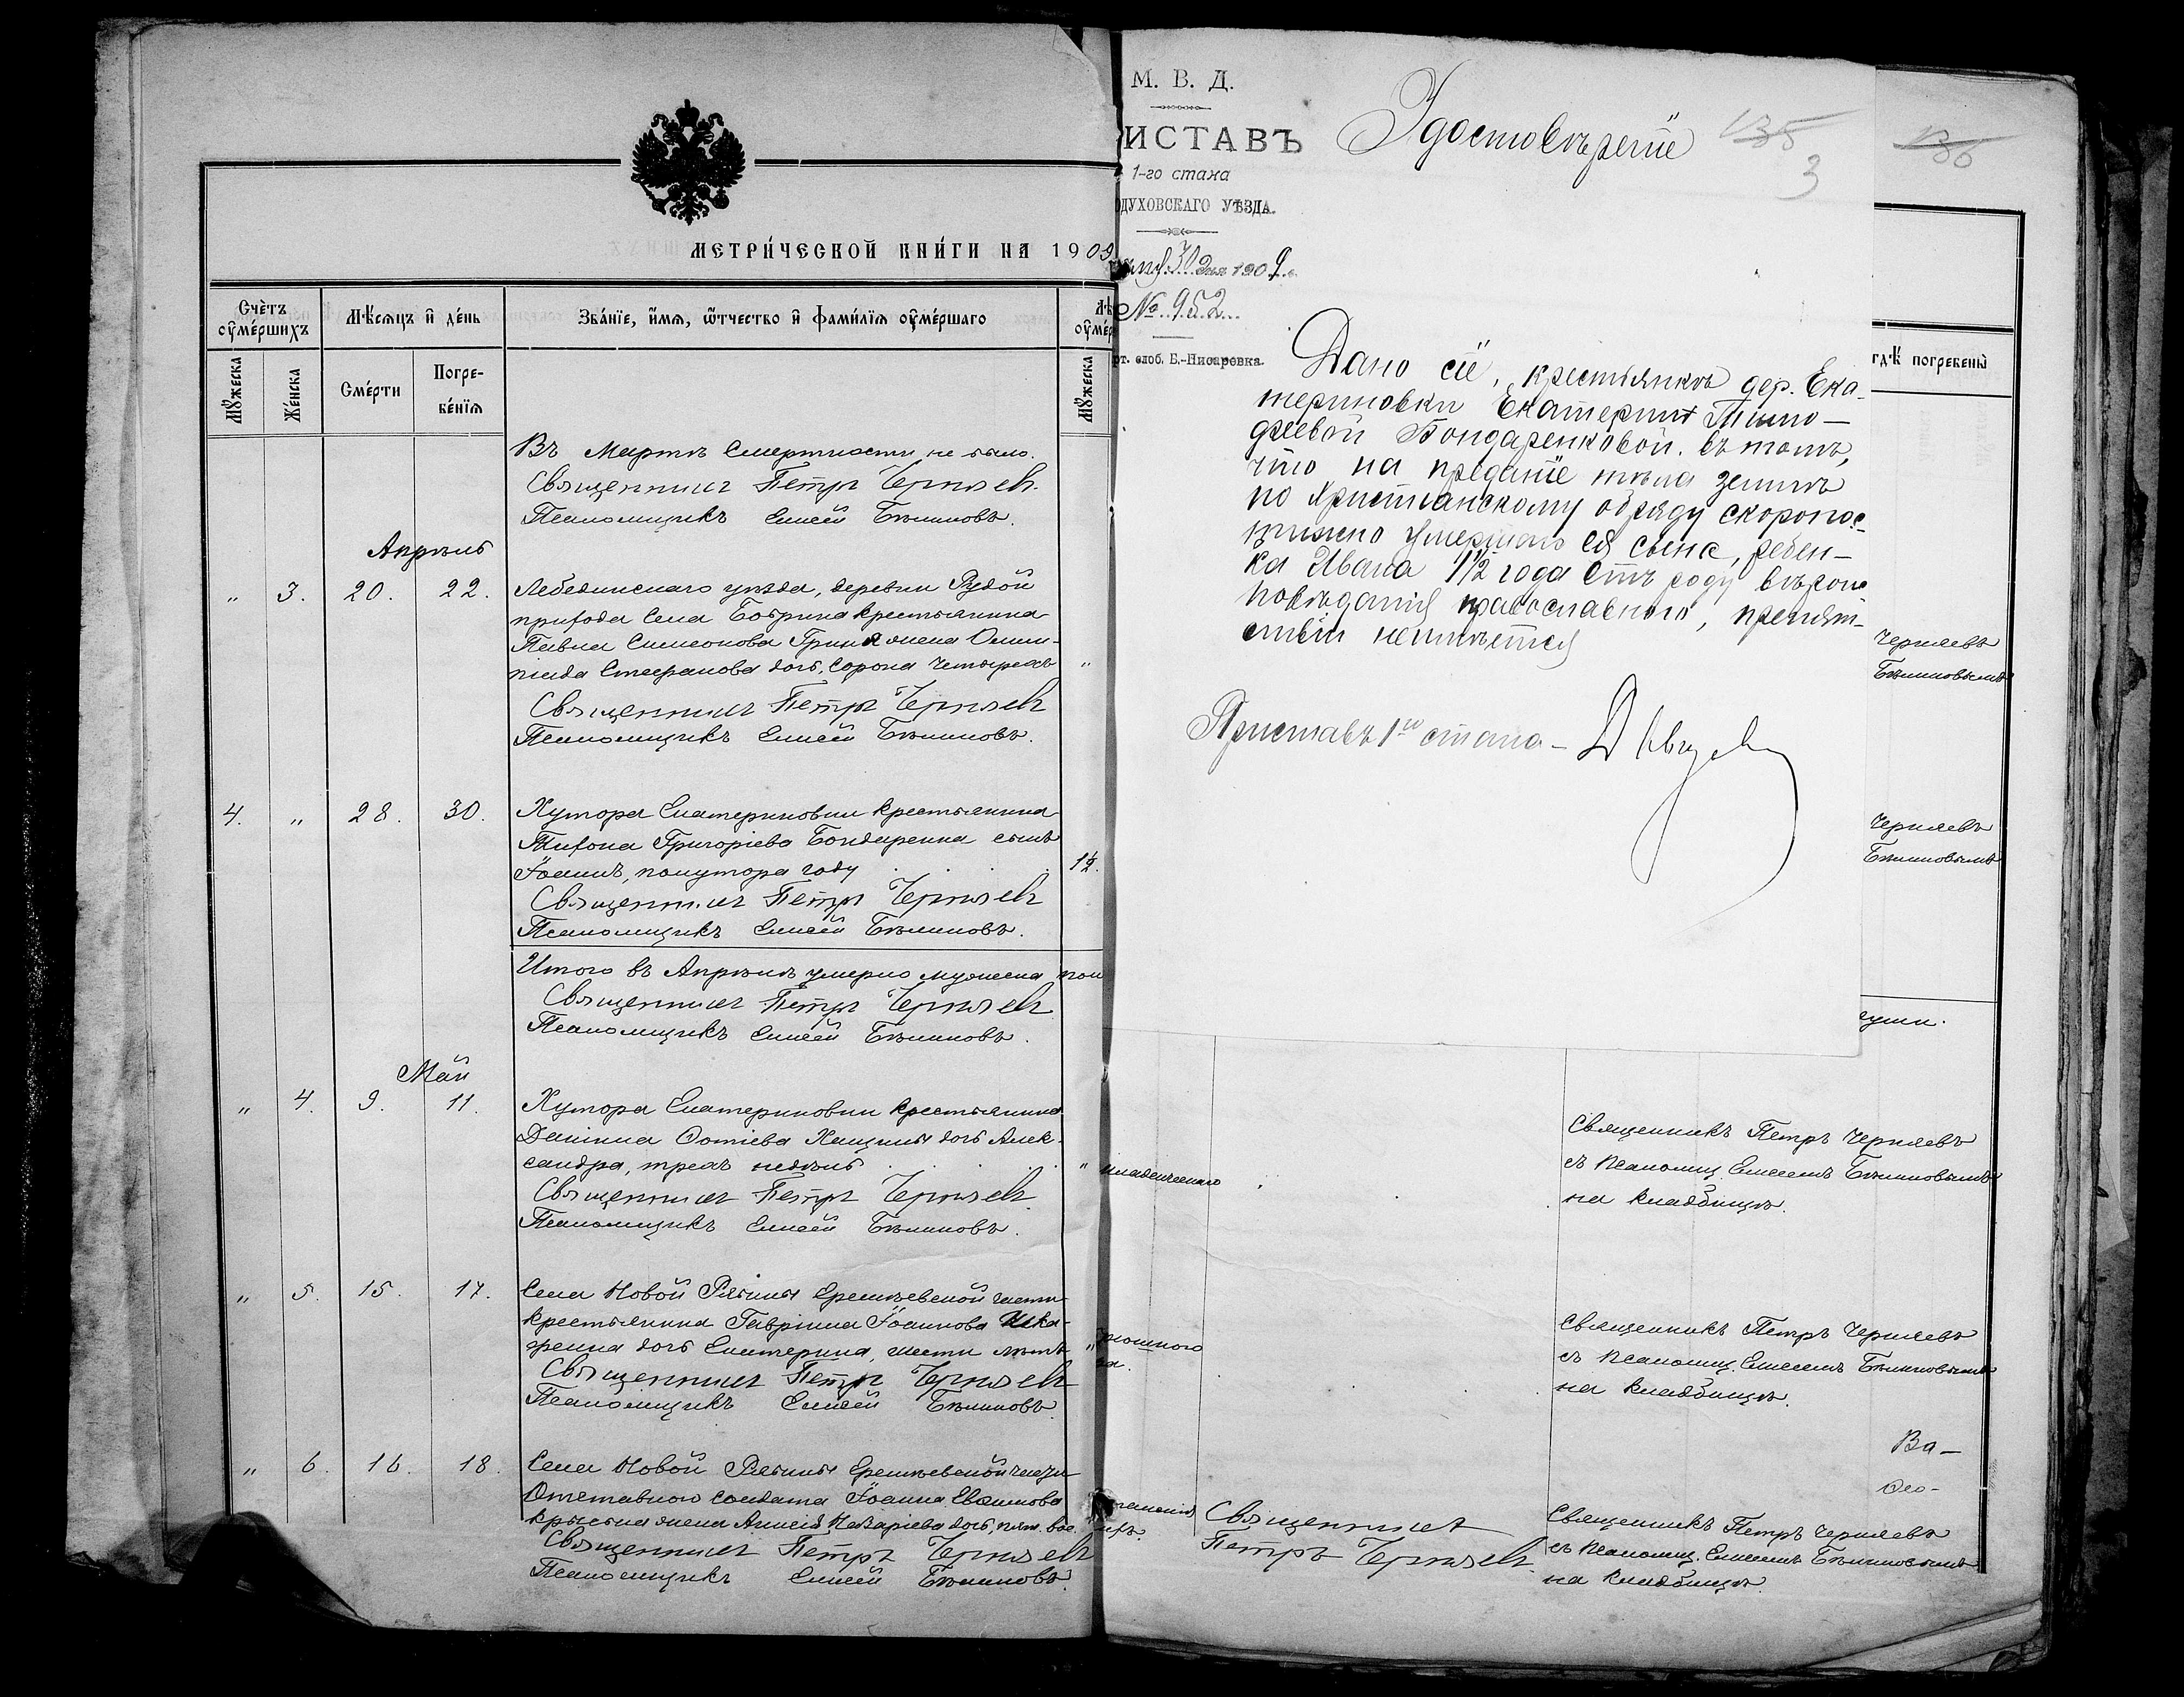 МЕТРИ́ЧЕСКОЙ КНИ́ГИ НА 1909
Счѐтъ ѹ҆ме́ршихъ
Мѣ́сѧцъ и҆ де́нь
Зва́нїе, и҆́мѧ, ѻ҆́тчество и҆ фами́лїѧ ѹ҆ме́ршаго
Лѣ
ѹ҆ме́р
Мꙋ́жеска
Же́нска
Сме́рти
Погре-
бе́нїѧ
Мꙋ́жеска
Въ Мартѣ смертности не было.
Священникъ Петръ Черняевъ.
Псаломщикъ Елисей Бѣликовъ.
Апрѣль
" 3. 20. 22. Лебединскаго уѣзда, деревни Рудой
прихода села Бобрика крестьянина
Павла Симеонова жена Олим-
піада Стефанова дочь, сорока четырехъ "
Священникъ Петръ Черняевъ
Псаломщикъ Елисей Бѣликовъ.
4. " 28. 30. Хутора Екатериновки крестьянина
Тихона Григоріева Бондаренка сынъ
Іоаннъ, полутора году 1½.
Священникъ Петръ Черняевъ
Псаломщикъ Елисей Бѣликовъ.
Итого въ Апрѣлѣ умерло мужеска пол
Священникъ Петръ Черняевъ
Псаломщикъ Елисей Бѣликовъ.
Май
" 4. 9. 11. Хутора Екатериновки крестьянина
Даніила Фотіева дочь Алек-
сандра, трехъ недѣль "
Священникъ Петръ Черняевъ
Псаломщикъ Елисей Бѣликовъ.
" 5. 15. 17. Села Новой Рябины части
крестьянина Гавріила Іоаннова
дочь Екатерина, шести лѣтъ "
Священникъ Петръ Черняевъ
Псаломщикъ Елисей Бѣликовъ
" 6. 16. 18. Села Новой Рябины части
Отставного солдата Іоанна
жена Назаріева дочь,
Священникъ Петръ Черняевъ
Псаломщикъ Елисей Бѣликовъ.
М. В. Д.
ИСТАВЪ
1-го стана
ОДУХОВСКАГО УѢЗДА.
30 дня 1909 г.
№ 952
рт. слоб. Б.-Писаревка.
Удостовѣреніе
135
3
136
Дано сіе, крестьянкѣ дер. Ека-
териновки Екатеринѣ Тимо-
феевой Бондаренковой въ томъ,
что на преданіе тѣла землѣ
по Христіанскому обряду скоропос-
тижно умершаго ея сына, ребен-
ка Ивана 1½ года отъ роду вѣроис
повѣданія православнаго, препят-
ствій неимѣется
Приставъ 1го стана –
гдѣ̀ погребены̀
Черняевъ
Бѣликовымъ
Черняевъ
Бѣликовымъ
души.
младенческаго
Священникъ Петръ Черняевъ
съ псаломщ. Елисеемъ Бѣликовымъ
на кладбищѣ.
Священникъ Петръ Черняевъ
съ псаломщ. Елисеемъ Бѣликовымъ
на кладбищѣ.
Ва-
Священникъ
Петръ Черняевъ.
Священникъ Петръ Черняевъ
съ псаломщ. Елисеемъ Бѣликовымъ
на кладбищѣ.